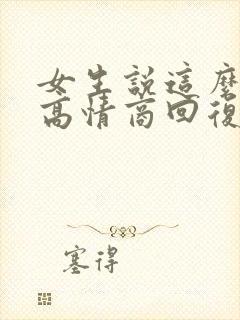 女生説這麼
高情商回復
塞得